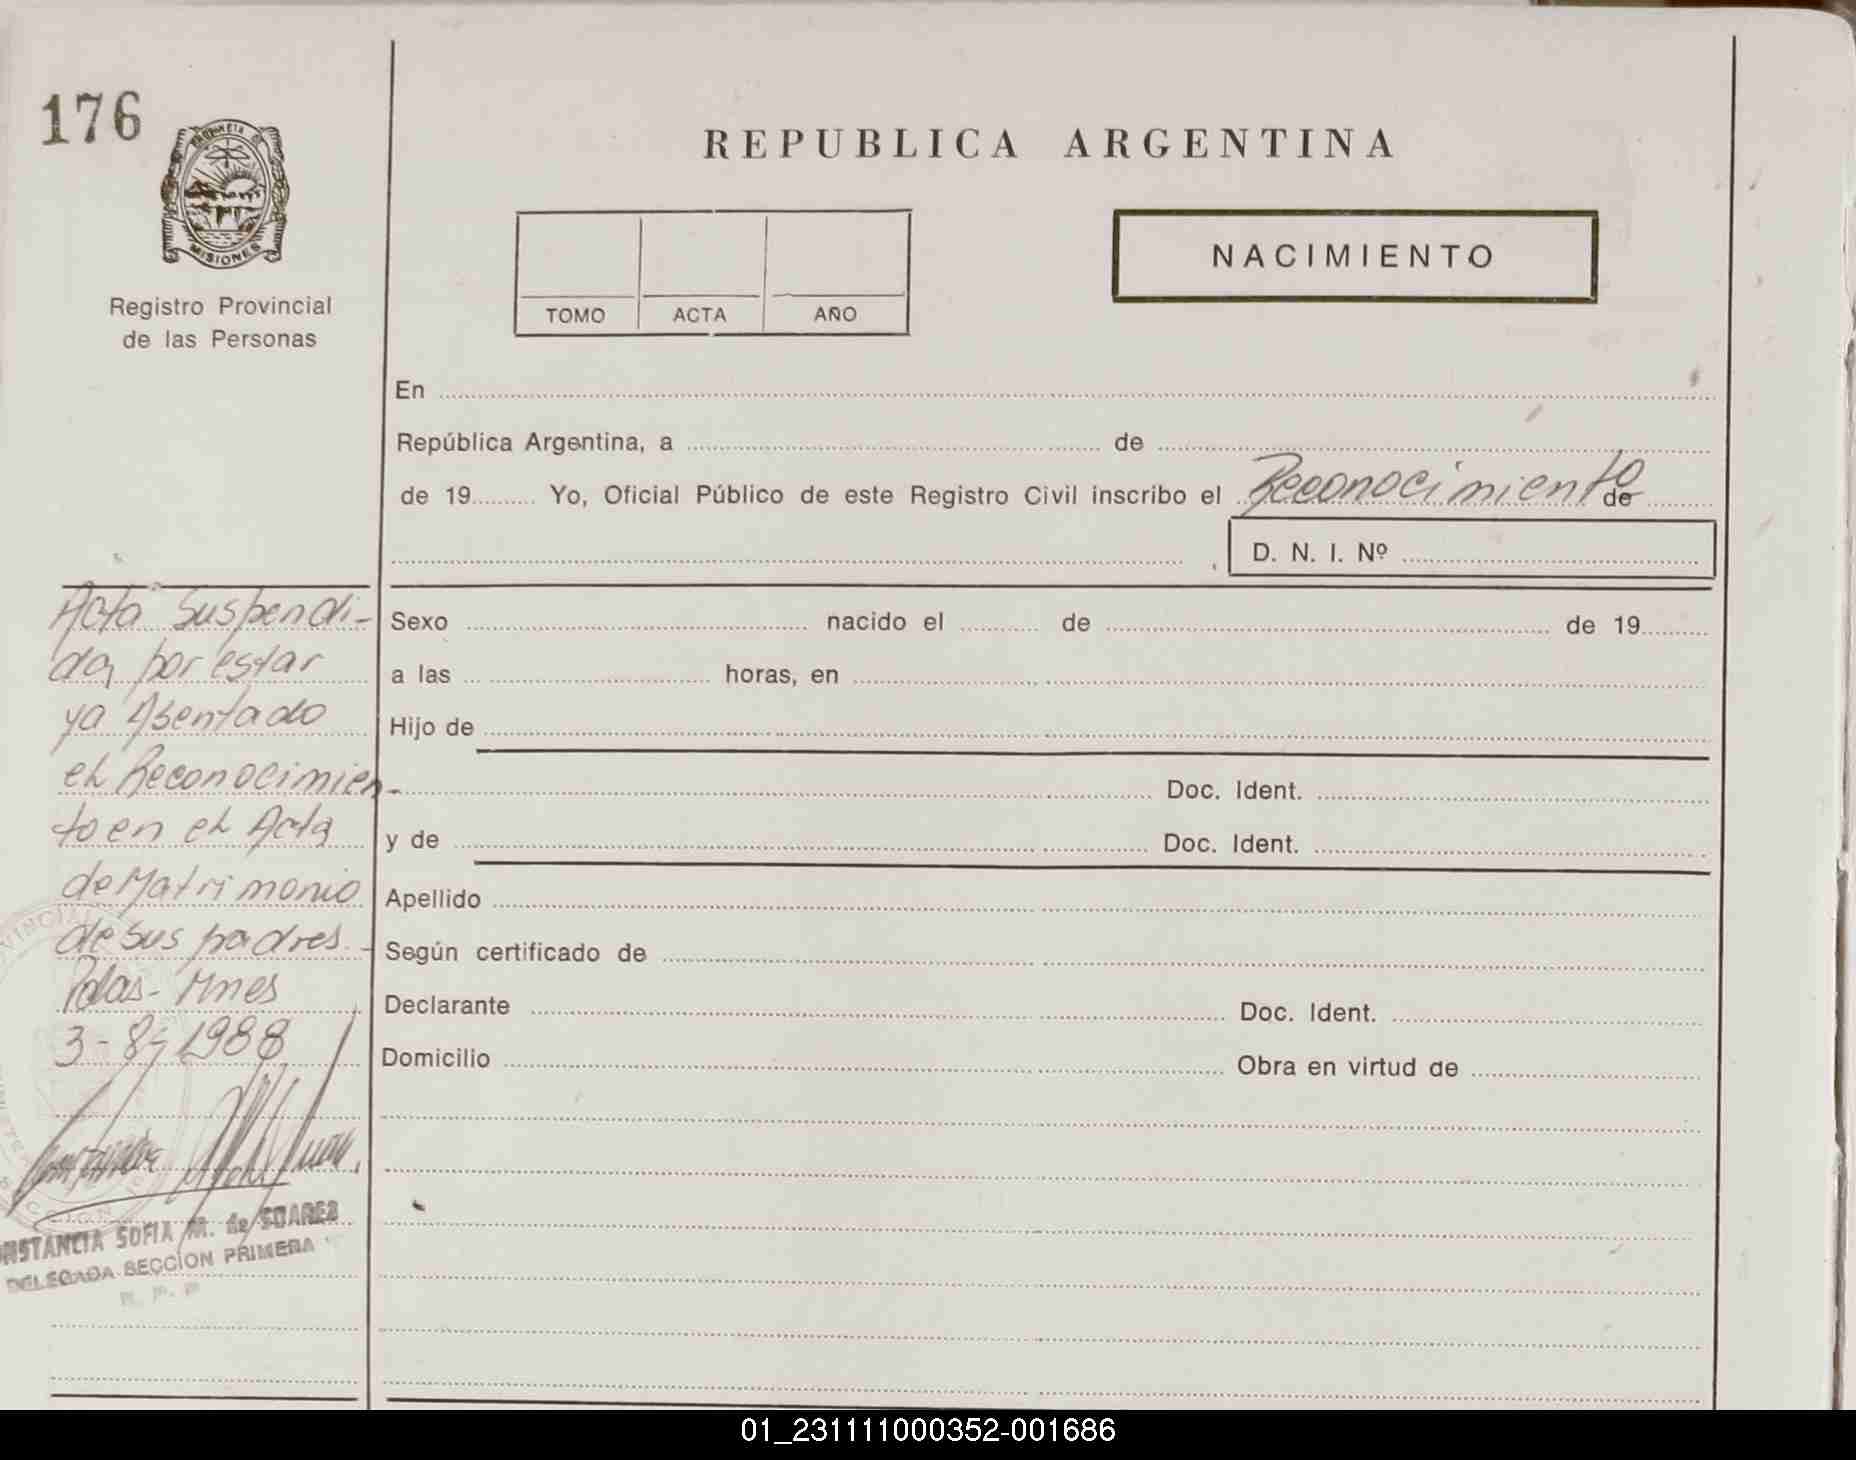 176
PROVINCIA DE
MISIONES
Registro Provincial
de las Personas
REPUBLICA ARGENTINA
TOMO ACTA AÑO
NACIMIENTO
En
República Argentina, a de
de 19 Yo, Oficial Público de este Registro Civil inscribo el Reconocimiento de
D. N. I. Nº
Sexo nacido el de de 19
a las horas, en
Hijo de
Doc. Ident.
y de Doc. Ident.
Apellido
Según certificado de
Declarante Doc. Ident.
Domicilio Obra en virtud de
Acta Suspendi-
da, por estar
ya Asentado
el Reconocimien-
to en el Acta
de Matrimonio
de sus padres.-
Pdas- Mnes
3-8-1988
CONSTANCIA SOFIA M. de SUAREZ
DELEGADA SECCION PRIMERA
R. P. P.
01_231111000352-001686